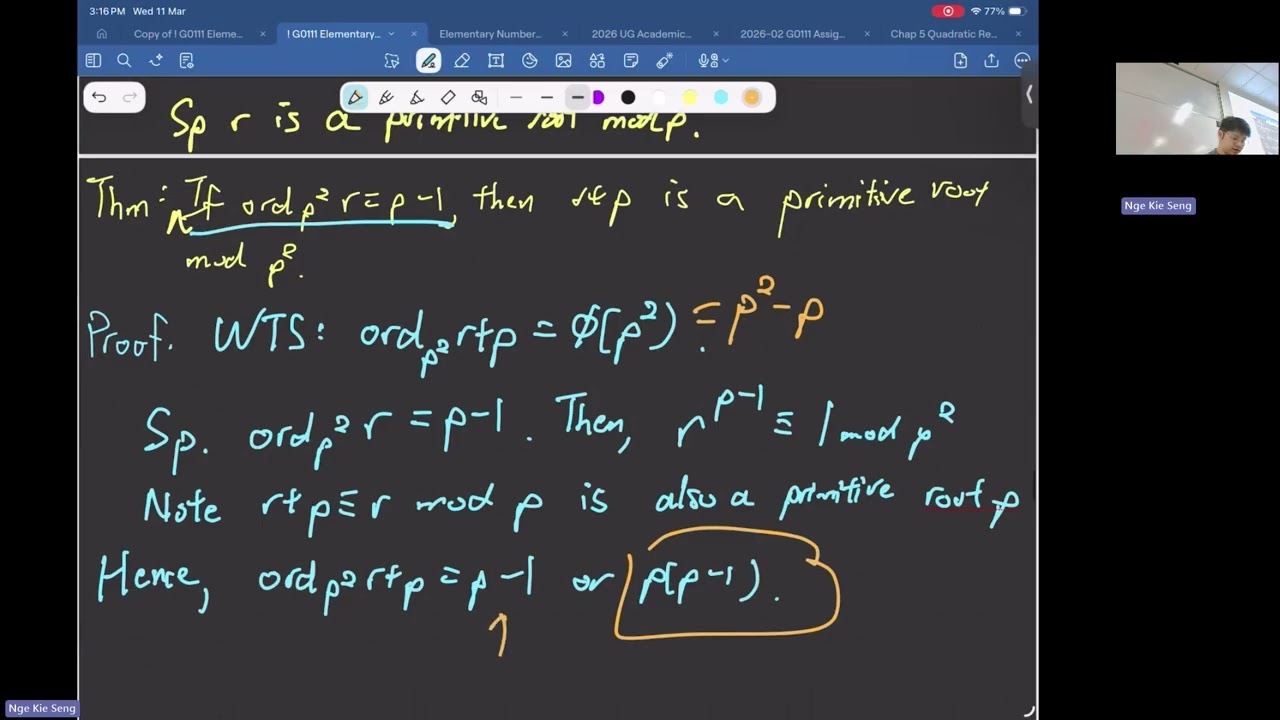 3:16 PM Wed 11 Mar
77%
Copy of ! G0111 Eleme...
! G0111 Elementary...
Elementary Number...
2026 UG Academic...
2026-02 G0111 Assig...
Chap 5 Quadratic Re...
Sp r is a primitive root mod p.
Thm: If ord_p² r = p-1, then r+p is a primitive root
mod p².
Proof. WTS: ord_p² r+p = φ(p²). = p²-p
Sp. ord_p² r = p-1. Then, r^(p-1) ≡ 1 mod p²
Note r+p ≡ r mod p is also a primitive root p
Hence, ord_p² r+p = p-1 or p(p-1).
Nge Kie Seng
Nge Kie Seng